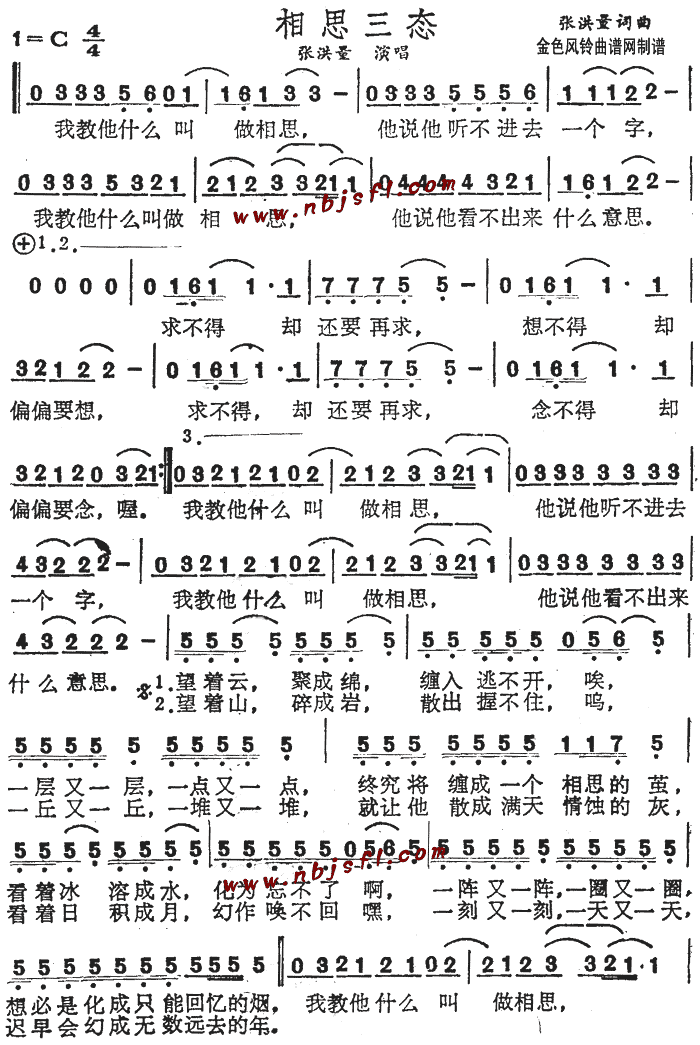 相思三态
1=C 4/4
张洪量 演唱
张洪量词曲
金色风铃曲谱网制谱
0 3 3 3 5 6 0 1 | 1 6 1 3 3 – | 0 3 3 3 5 5 5 6 | 1 1 1 2 2 – |
我教他什么 叫 做相思, 他说他听不进去 一个 字,
0 3 3 3 5 3 2 1 | 2 1 2 3 3 2 1 1 | 0 4 4 4 4 3 2 1 | 1 6 1 2 2 – |
我教他什么叫做 相 思, 他说他看不出来 什么意思。
www.nbjsfl.com
1.2.
0 0 0 0 | 0 1 6 1 1 · 1 | 7 7 7 5 5 – | 0 1 6 1 1 · 1 |
求不得 却 还要再求, 想不得 却
3 2 1 2 2 – | 0 1 6 1 1 · 1 | 7 7 7 5 5 – | 0 1 6 1 1 · 1 |
偏偏要想, 求不得, 却 还要再求, 念不得 却
3.
3 2 1 2 0 3 2 1 :‖ 0 3 2 1 2 1 0 2 | 2 1 2 3 3 2 1 1 | 0 3 3 3 3 3 3 3 |
偏偏要念, 喔。 我教他什么 叫 做相思, 他说他听不进去
4 3 2 2 2 – | 0 3 2 1 2 1 0 2 | 2 1 2 3 3 2 1 1 | 0 3 3 3 3 3 3 3 |
一个 字, 我教他什么 叫 做相思, 他说他看不出来
4 3 2 2 2 – | 5 5 5 5 5 5 5 | 5 5 5 5 5 0 5 6 5 |
什么意思。 1.望着云, 聚成绵, 缠入 逃不开, 唉,
2.望着山, 碎成岩, 散出 握不住, 呜,
5 5 5 5 5 5 5 5 5 5 | 5 5 5 5 5 5 5 1 1 7 5 |
一层又一层, 一点又一点, 终究将 缠成一个 相思的 茧,
一丘又一丘, 一堆又一堆, 就让他 散成满天 情蚀的 灰,
5 5 5 5 5 5 5 | 5 5 5 5 5 0 5 6 5 | 5 5 5 5 5 5 5 5 5 5
看着冰 溶成水, 化为忘不了 啊, 一阵又一阵,一圈又一圈,
看着日 积成月, 幻作唤不回 嘿, 一刻又一刻,一天又一天,
www.nbjsfl.com
5 5 5 5 5 5 5 5 5 5 5 5 ‖ 0 3 2 1 2 1 0 2 | 2 1 2 3 3 2 1 · 1 |
想必是化成只能回忆的烟, 我教他什么 叫 做相思,
迟早会幻成无数远去的年。